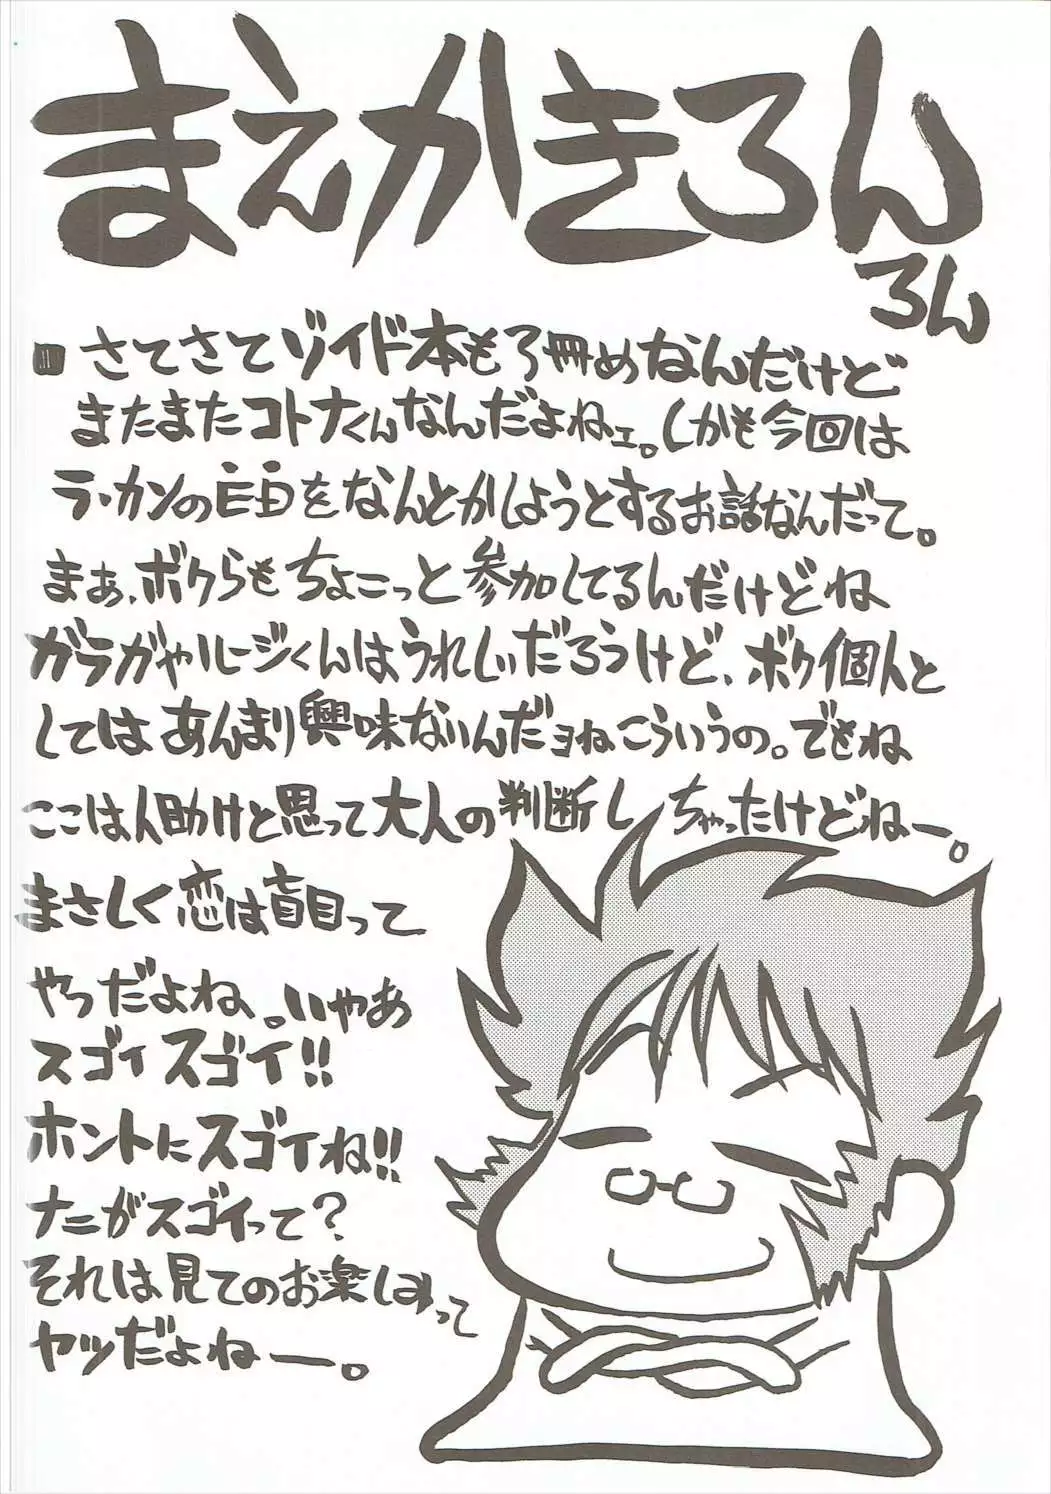 まえがきろん
ろん
さてさてゾイド本も3冊めなんだけど
またまたコトナくんなんだよねェ。しかも今回は
ラ・カンのをなんとかしようとするお話なんだって。
まぁ、ボクらもちょこっと参加してるんだけどね
ガラガャルージくんはうれしいだろうけど、ボク個人と
してはあんまり興味ないんだョねこういうの。でもね
ここは人助けと思って大人の判断しちゃったけどねー。
まさしく恋は盲目って
やつだよね、。いやあ
スゴイスゴイ!!
ホントにスゴイね!!
ナニがスゴイって?
それは見てのお楽しみって
ヤツだよねー。